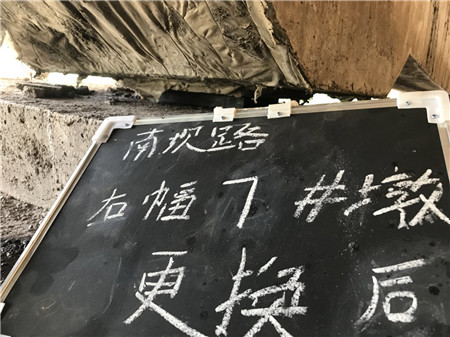 南坝路
右幅7#墩
更换后